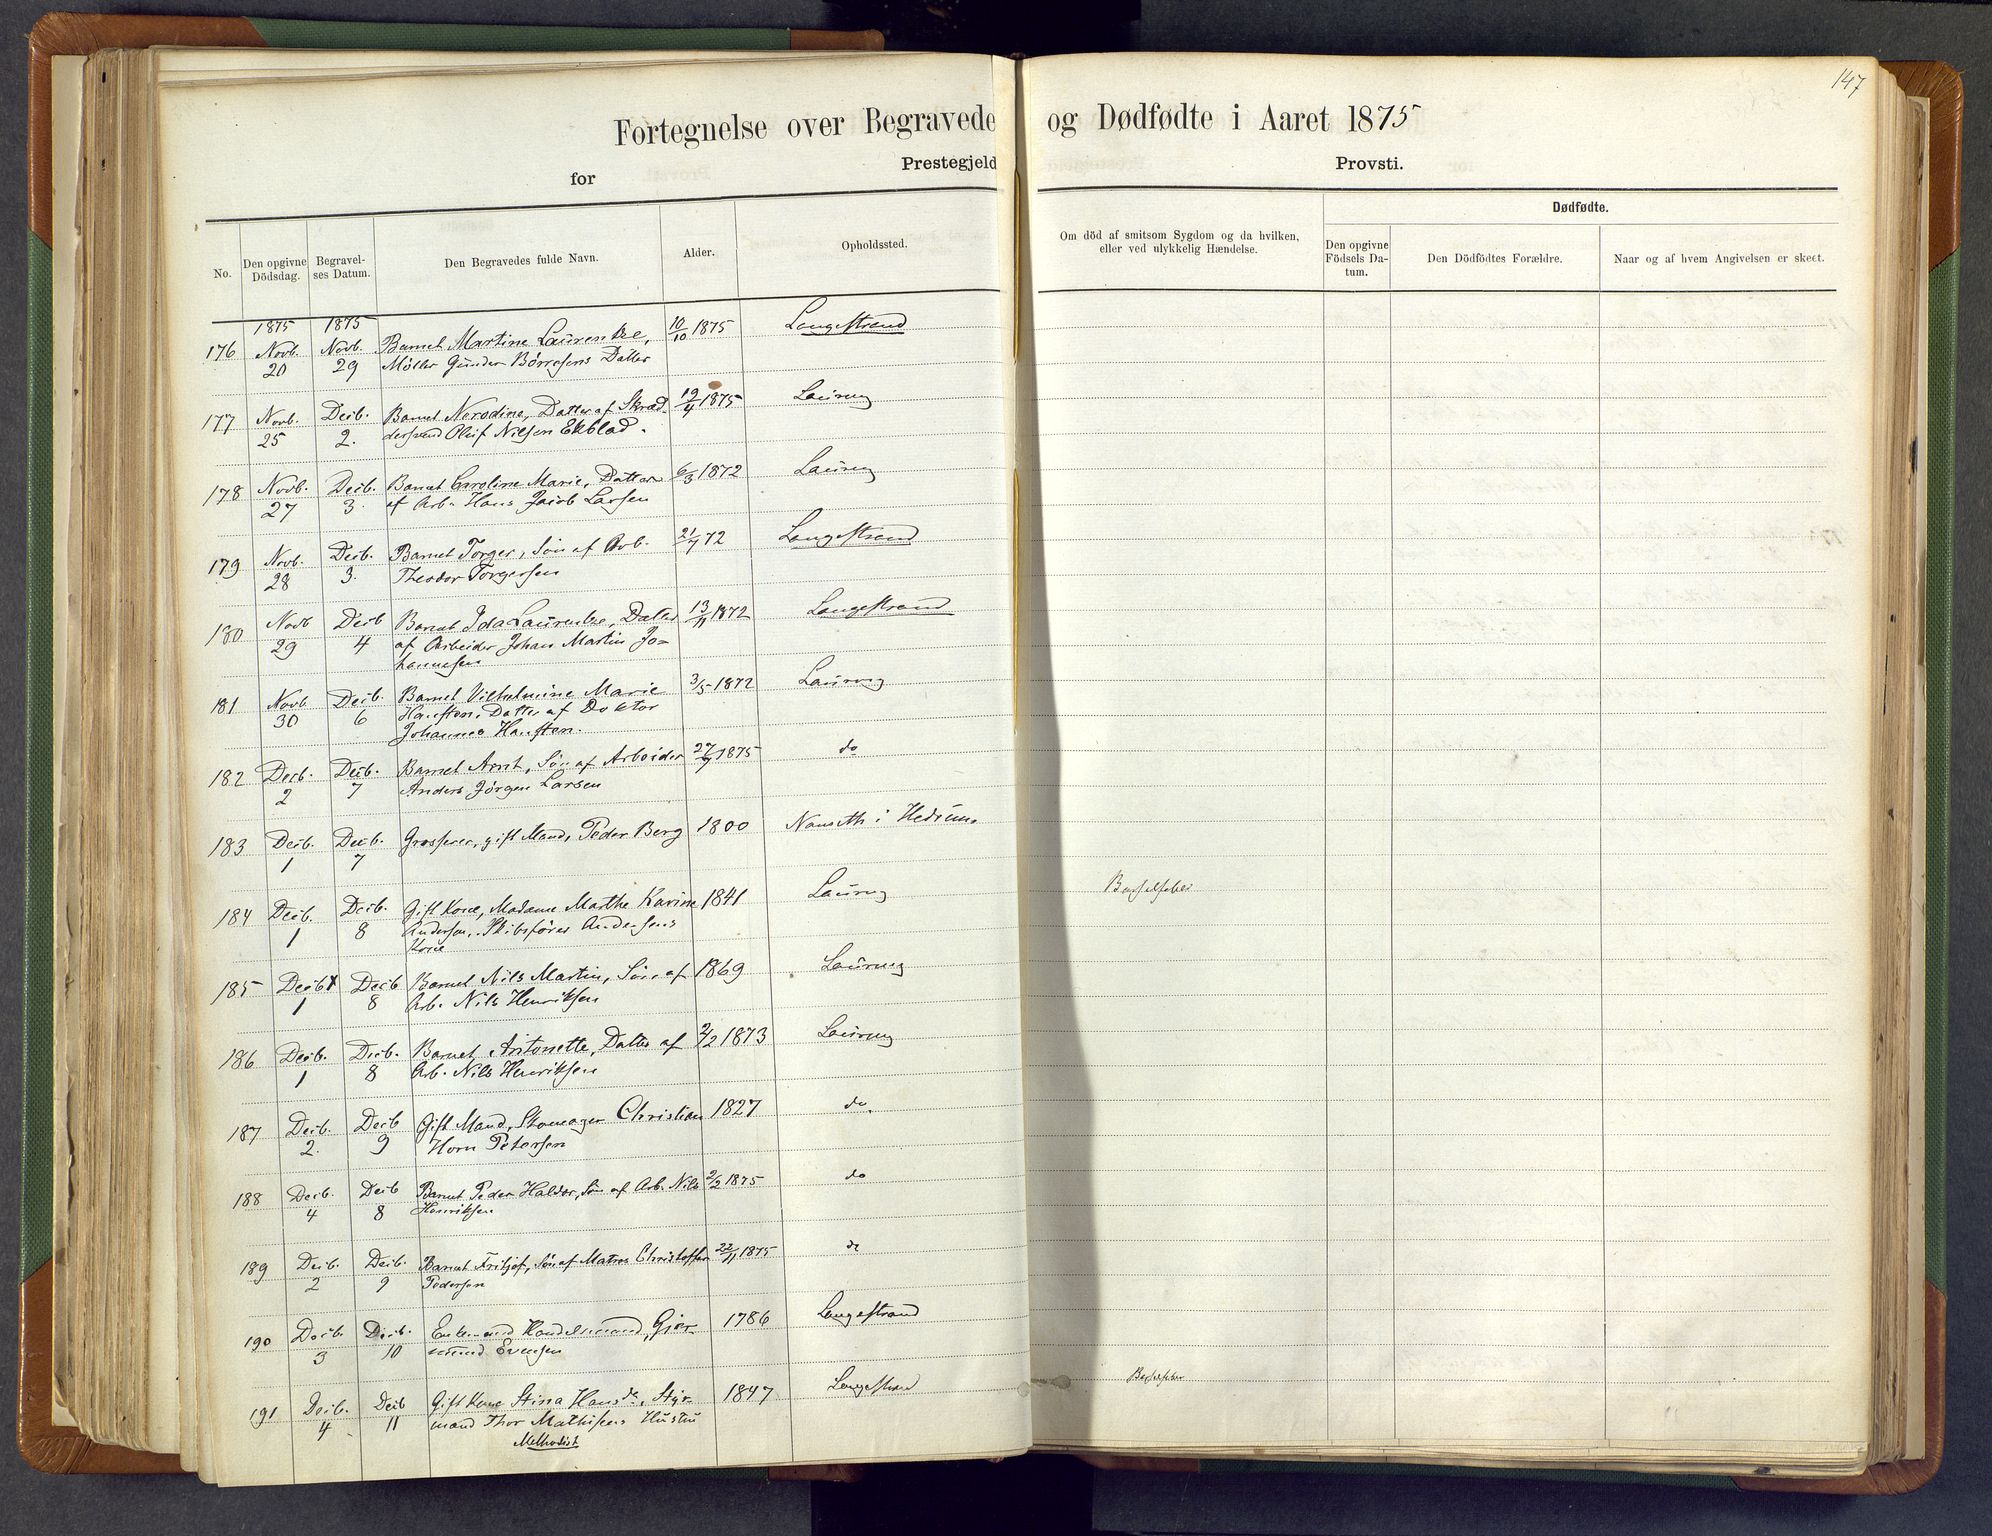 147
Fortegnelse over Begravede og Dødfødte i Aaret 1875
for Prestegjeld Provsti.
No.
Den opgivne Dödsdag.
Begravel-
ses Datum.
Den Begravedes fulde Navn.
Alder.
Opholdssted.
Om död af smitsom Sygdom og da hvilken,
eller ved ulykkelig Hændelse.
Dødfødte.
Den opgivne
Födsels Da-
tum.
Den Dödfödtes Forældre.
Naar og af hvem Angivelsen er skeet.
1875 1875
176 Novb. 20 Novb. 29 Barnet Martine Laurentze, 10/10 1875 Langestrand
Møller Gunder Børresens Datter
177 Novb. 25 Decb. 2. Barnet Nerodine, Datter af Skræd- 19/4 1875 Laurvig
dersvend Oluf Nilsen Ekblad.
178 Novb. 27 Decb. 3. Barnet Caroline Marie, Datter 6/3 1872 Laurvig
af Arb. Hans Jacob Larsen
179 Novb. 28 Decb. 3. Barnet Torger, Søn af Arb. 21/7 72 Langestrand
Theodor Torgersen
180 Novb 29 Decb 4 Barnet Ida Laurentze, Datter 13/11 1872 Langestrand
af Arbeider Johan Martin Jo-
hannesen
181 Novb 30 Decb. 6 Barnet Vilhelmine Marie 3/5 1872 Laurvig
Hansten, Datter af Doktor
Johannes Hansten.
182 Decb. 2 Decb. 7 Barnet Arnt, Søn af Arbeider 27/9 1875 do
Anders Jørgen Larsen
183 Decb. 1 Decb. 7 Grosserer, gift Mand, Peder Berg 1800 Nanseth i Hedrum
184 Decb. 1 Decb. 8 Gift Kone, Madame Marthe Karine 1841 Laurvig Barselseber
Andersen, Skibsfører Andersens
Kone
185 Decb 1 Decb 8 Barnet Nils Martin, Søn af 1869 Laurvig
Arb. Nils Henriksen
186 Decb. 1 Decb. 8 Barnet Antonette, Datter af 2/2 1873 Laurvig
Arb. Nils Henriksen
187 Decb. 2. Decb 9 Gift Mand, Skomager Christian 1827 do.
Horn Petersen
188 Decb. 4 Decb 8 Barnet Peder Haldor, Søn af Arb. Nils 2/2 1875 do
Henriksen
189 Decb. 2 Decb. 9 Barnet Fritjof, Søn af Matros Christoffer 22/11 1875 do
Pedersen
190 Decb. 3 Decb. 10 Enkemand Handelsmand, Gjer- 1786 Langestrand
mund Evensen
191 Decb. 4 Decb 11 Gift Kone Stina Hansdr, Styr- 1847 Langestrand Barselseber
mand Thor Mathisens Hustru
Methodist